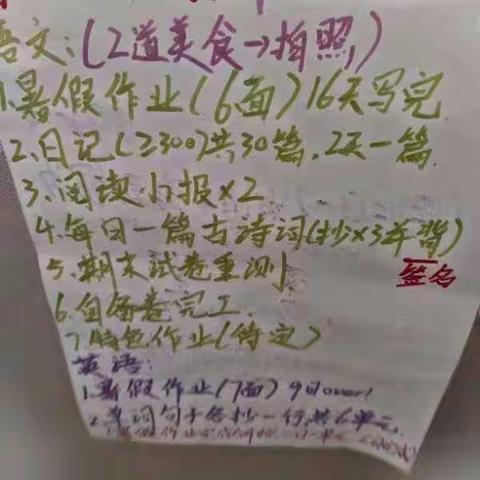 语文:(2道美食→拍照)
1.暑假作业(6面)16天写完.
2.日记(≥300)共30篇.2天一篇.
3.阅读小报×2
4.每日一篇古诗词(抄×3并背)
签名
5.期末试卷重测
6.自备卷完工.
7.特色作业(待定)
英语:
1.暑假作业(7面)9日over!
2.单词句子各抄一行,共6单元.